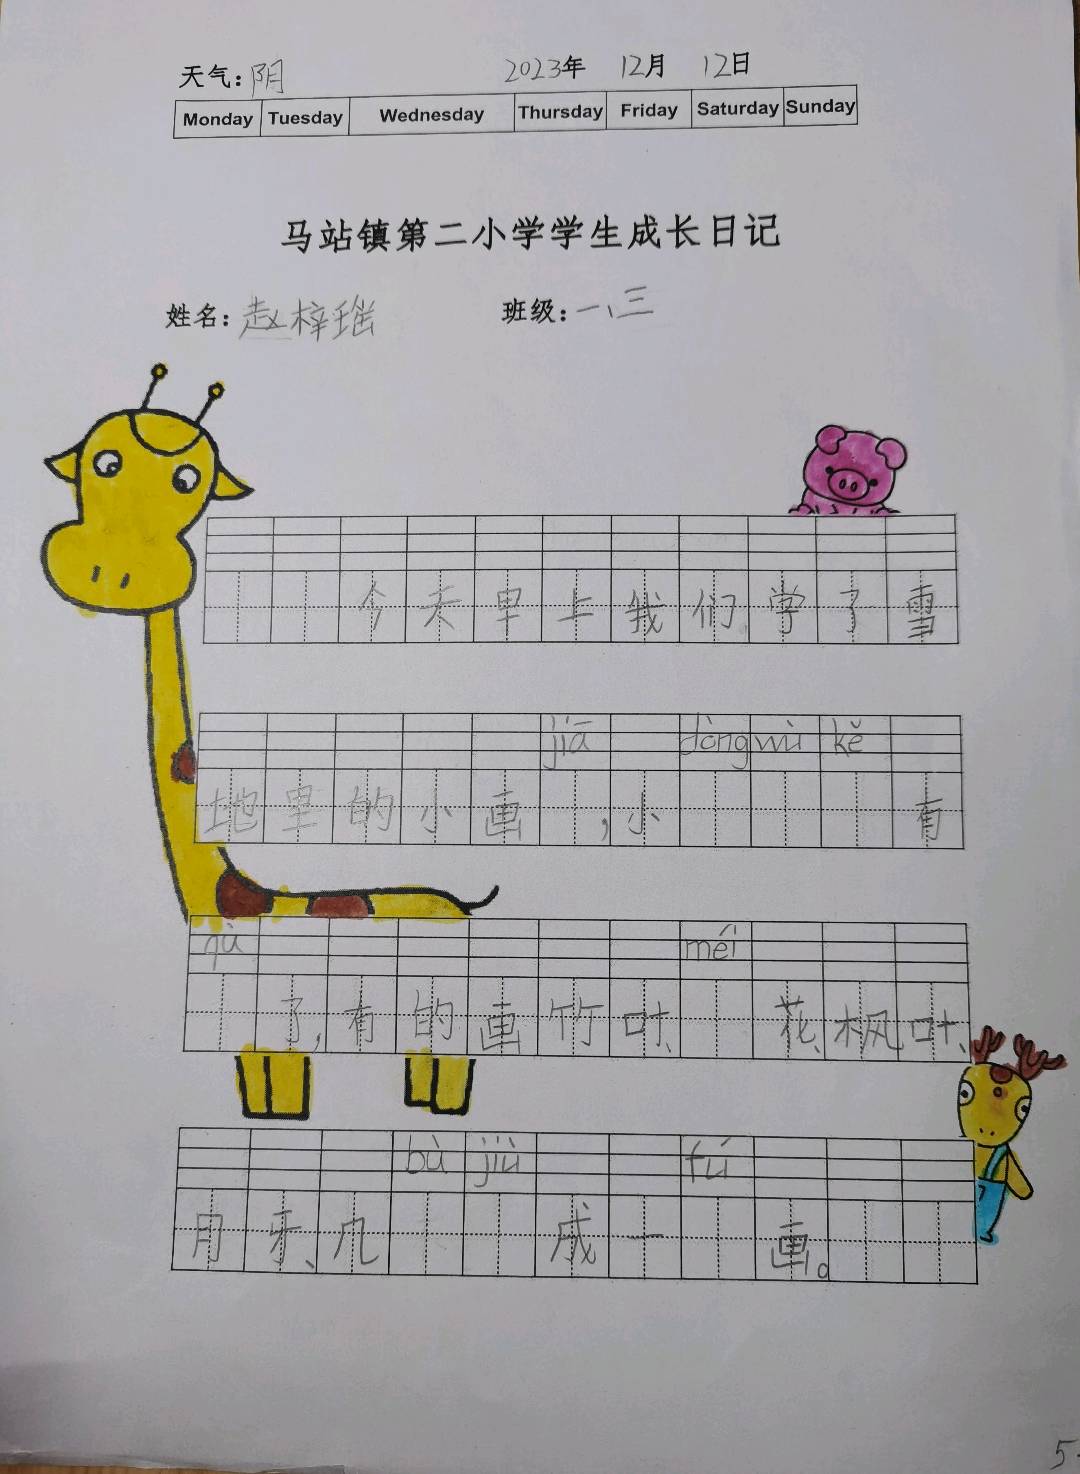 天气:阴 2023年 12月 12日
Monday Tuesday Wednesday Thursday Friday Saturday Sunday
马站镇第二小学学生成长日记
姓名:赵梓瑶 班级:一、三
今天早上我们学了雪
jiā dòng wù kě
地里的小画,小有
qù méi
了,有的画竹叶、花、枫叶、
bù jiù fú
月牙、几成一画。
5